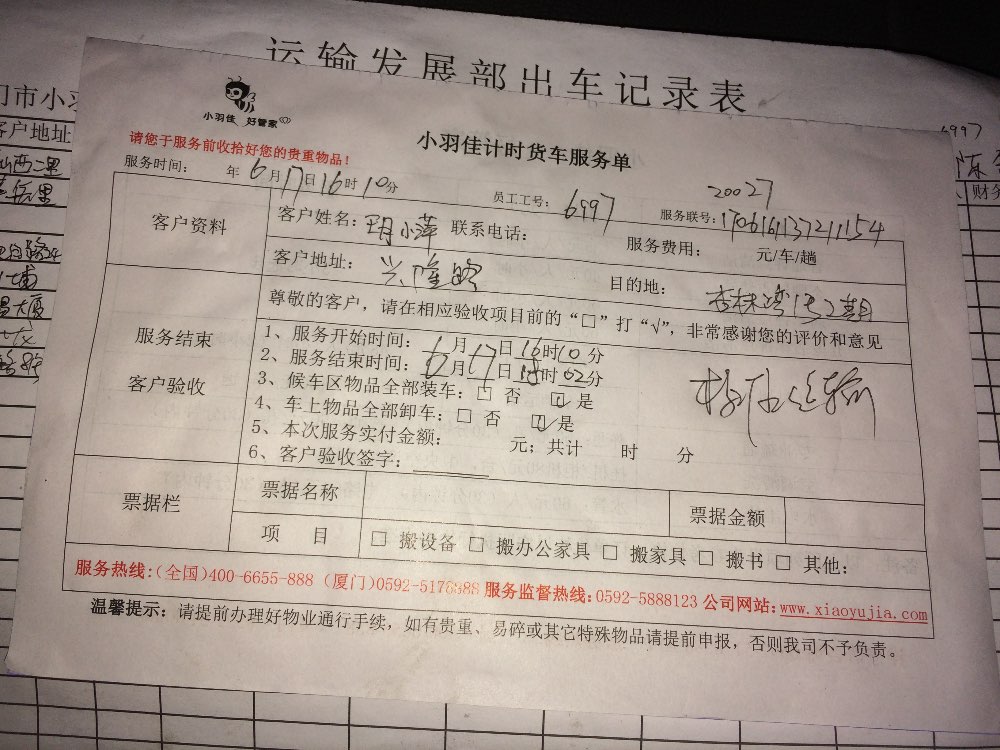 运输发展部出车记录表
客户地址
小羽佳 好管家
小羽佳计时货车服务单
请您于服务前收拾好您的贵重物品!
服务时间: 年 6月17日16时10分 员工工号: 6997 20027
服务联号:
客户资料
客户姓名: 小萍 联系电话: 服务费用: 元/车/趟
客户地址: 兴隆路 目的地:
服务结束
客户验收
尊敬的客户,请在相应验收项目前的“□”打“√”,非常感谢您的评价和意见
1、服务开始时间: 6月17日16时10分
2、服务结束时间: 6月17日18时02分
3、候车区物品全部装车:□ 否 ☑ 是
4、车上物品全部卸车:□ 否 ☑ 是
5、本次服务实付金额: 元;共计 时 分
6、客户验收签字:
票据栏
票据名称 票据金额
项 目 □ 搬设备 □ 搬办公家具 □ 搬家具 □ 搬书 □ 其他:
服务热线:(全国)400-6655-888 (厦门)0592-5178888 服务监督热线:0592-5888123 公司网站:www.xiaoyujia.com
温馨提示:请提前办理好物业通行手续,如有贵重、易碎或其它特殊物品请提前申报,否则我司不予负责。